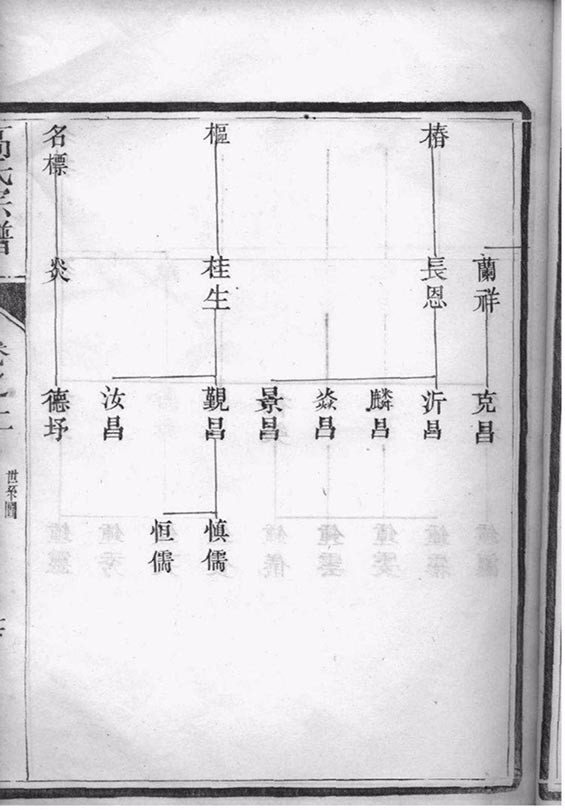 椿
樞
名標
蘭祥
長恩
桂生
炎
克昌
沂昌
麟昌
焱昌
景昌
覲昌
汝昌
德垿
慎儒
恒儒
氏宗譜
世系圖